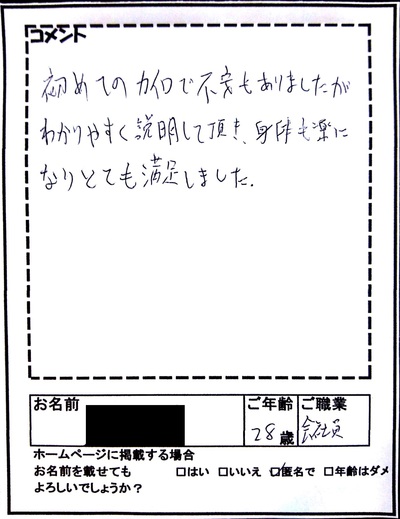 コメント
初めてのカイロで不安もありましたが
わかりやすく説明して頂き、身体も楽に
なりとても満足しました.
お名前
ご年齢
ご職業
28歳
会社員
ホームページに掲載する場合
お名前を載せても
□はい □いいえ ☑匿名で □年齢はダメ
よろしいでしょうか？